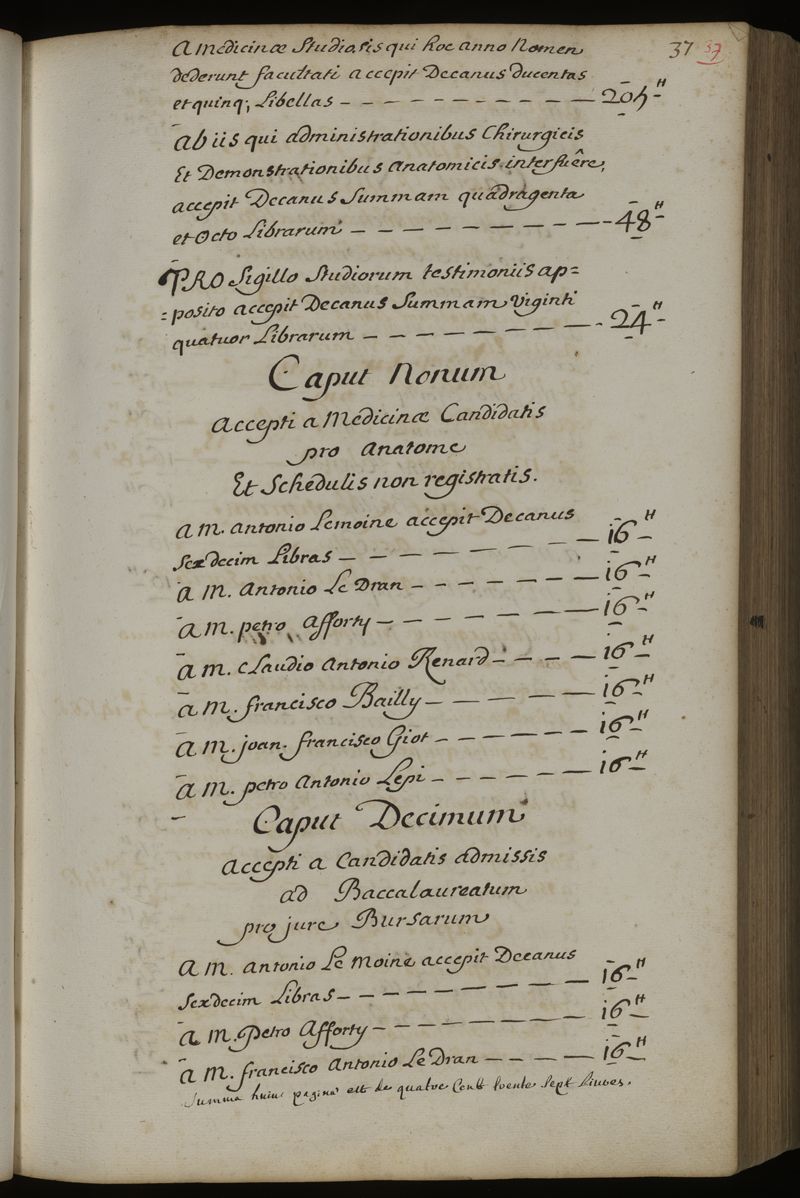 37 37
A Medicinæ Studiosis qui hoc anno Nomen
dederunt facultati accepit Decanus ducentas
et quinq; Libellas – – – – – – – – – 205 ᴴ
Ab iis qui administrationibus Chirurgicis
Et Demonstrationibus Anatomicis interfuêre,
accepit Decanus Summam quadragenta
et Octo Librarum – – – – – – – – 48 ᴴ
PRO Sigillo Studiorum testimoniis ap=
=posito accepit Decanus Summam Viginti
quatuor Librarum – – – – – – – – 24 ᴴ
Caput Nonum
Accepti a Medicinæ Candidatis
pro Anatome
Et Schedulis non registratis.
A M. Antonio Lemoine accepit Decanus
Sexdecim Libras – – – – – – – 16 ᴴ
A M. Antonio Le Dran – – – – – – 16 ᴴ
A M. petro Afforty – – – – – – 16 ᴴ
A M. Claudio Antonio Renard – – – – 16 ᴴ
A M. francisco Bailly – – – – – 16 ᴴ
A M. joan. francisco Giot – – – – – – 16 ᴴ
A M. petro Antonio Lepi – – – – – – 16 ᴴ
Caput Decimum
Accepti a Candidatis admissis
ad Baccalaureatum
pro jure Bursarum
A M. Antonio Le Moine accepit Decanus
Sexdecim Libras – – – – – – – – 16 ᴴ
A M. Petro Afforty – – – – – – – 16 ᴴ
A M. francisco Antonio Le Dran – – – – 16 ᴴ
Summa huius pagina est de quatre Cent trente Sept Liures.